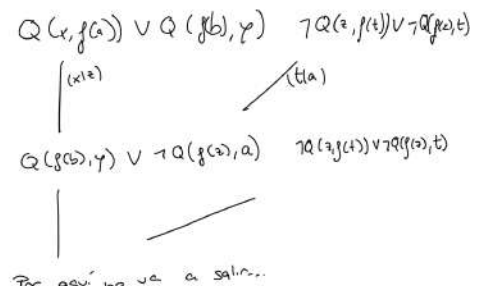 Q(x, f(a)) ∨ Q(f(b), y) ¬Q(z, f(t)) ∨ ¬Q(f(z), t)
(x|z) (t|a)
Q(f(b), y) ∨ ¬Q(f(z), a) ¬Q(z, f(t)) ∨ ¬Q(f(z), t)
Por aquí no va a salir...